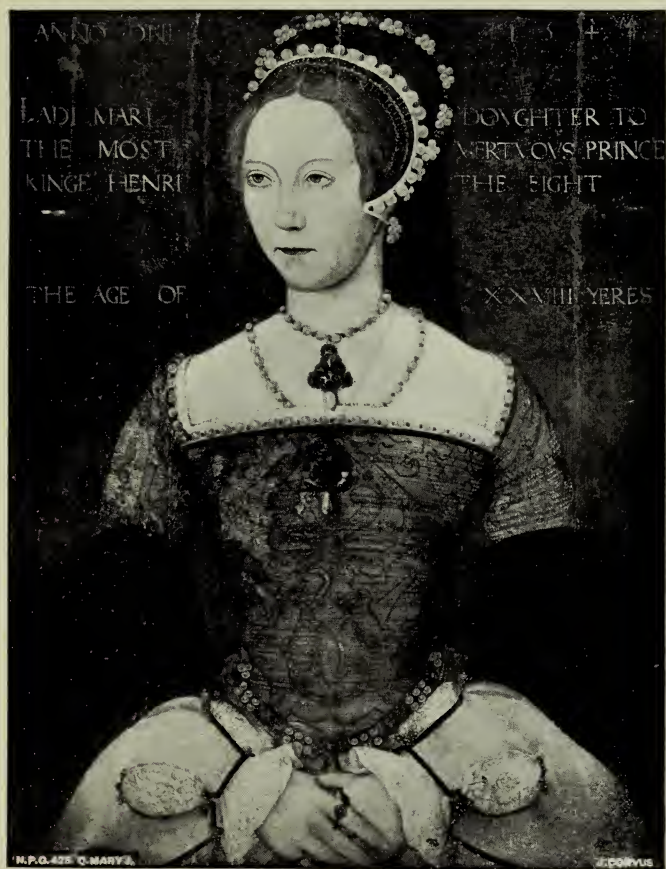 ANNO DNI 1544
LADI MARI DOVGHTER TO
THE MOST VERTVOVS PRINCE
KINGE HENRI THE EIGHT
THE AGE OF XXVIII YERES
N.P.G. 428 Q. MARY I. J. CORVUS